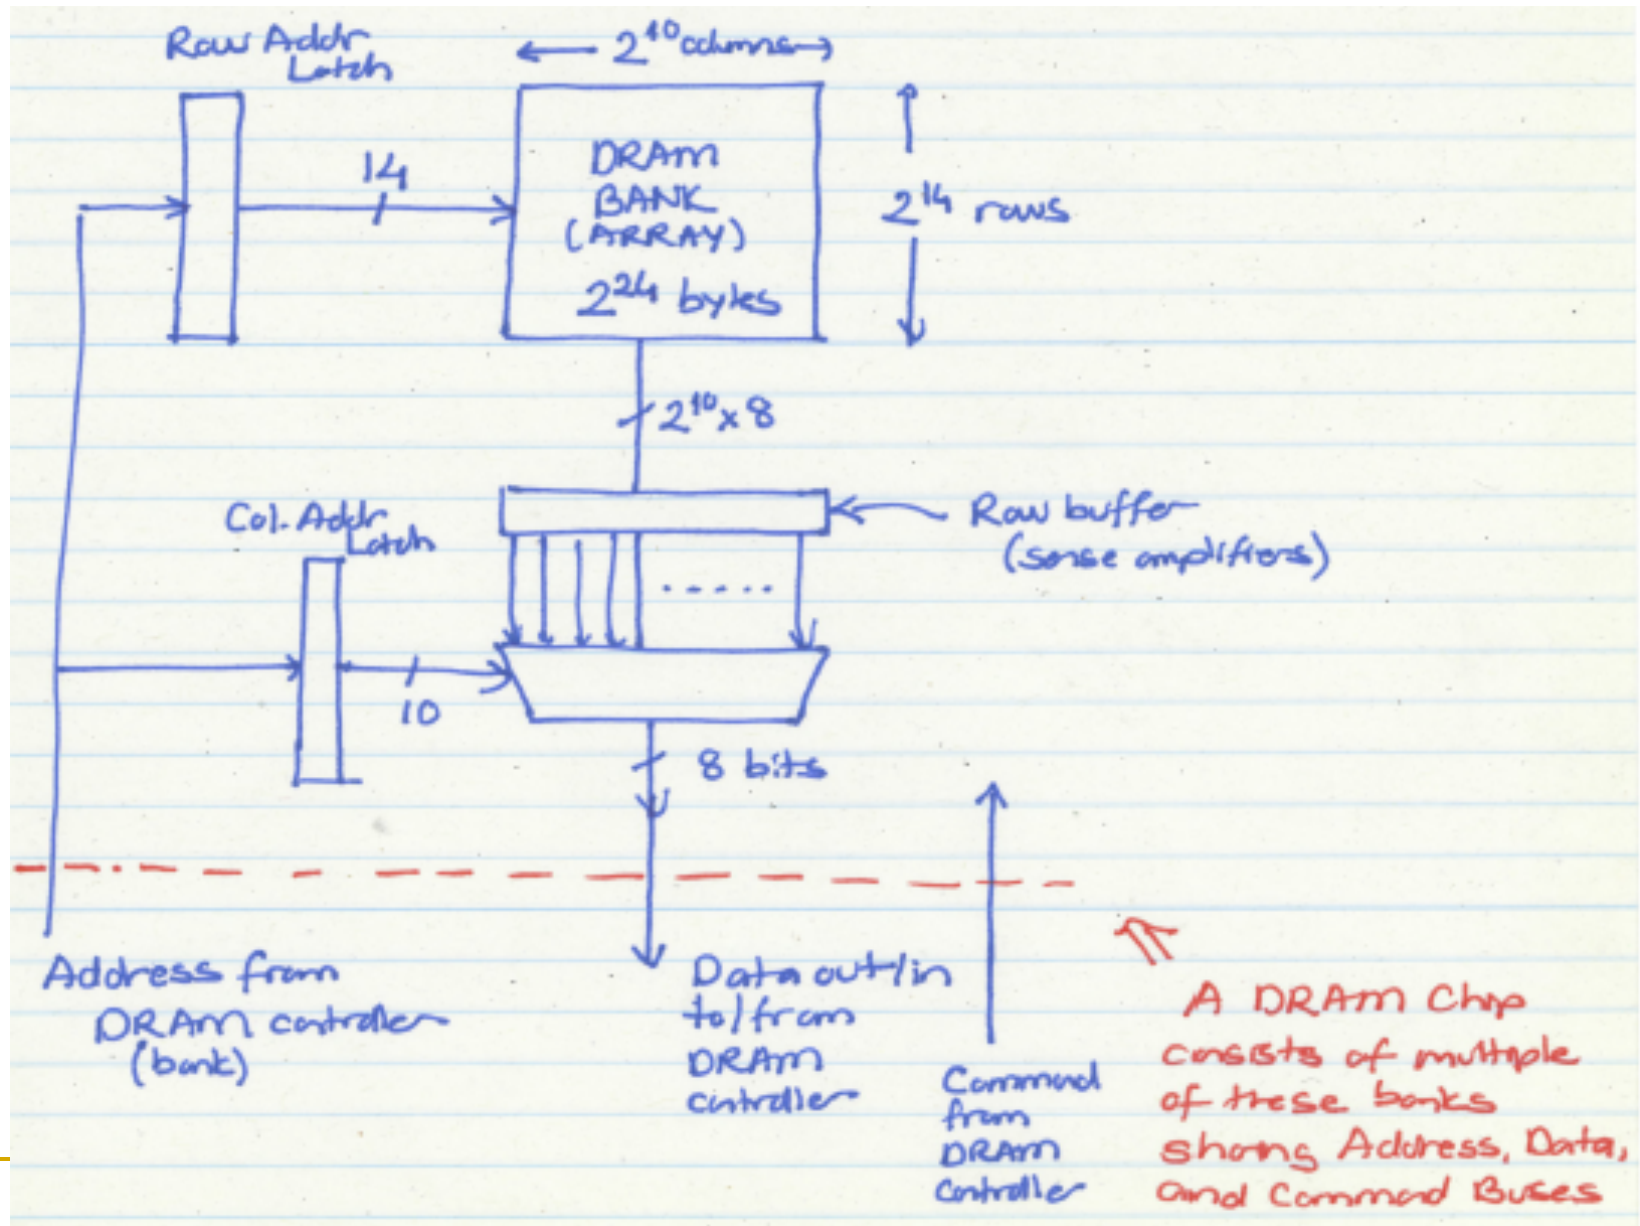 Row Addr
Latch
← 2^10 columns →
14
DRAM
BANK
(ARRAY)
2^24 bytes
2^14 rows
2^10 x 8
Col. Addr
Latch
Row buffer
(sense amplifiers)
10
8 bits
Address from
DRAM controller
(bank)
Data out/in
to/from
DRAM
controller
Command
from
DRAM
controller
A DRAM Chip
consists of multiple
of these banks
sharing Address, Data,
and Command Buses